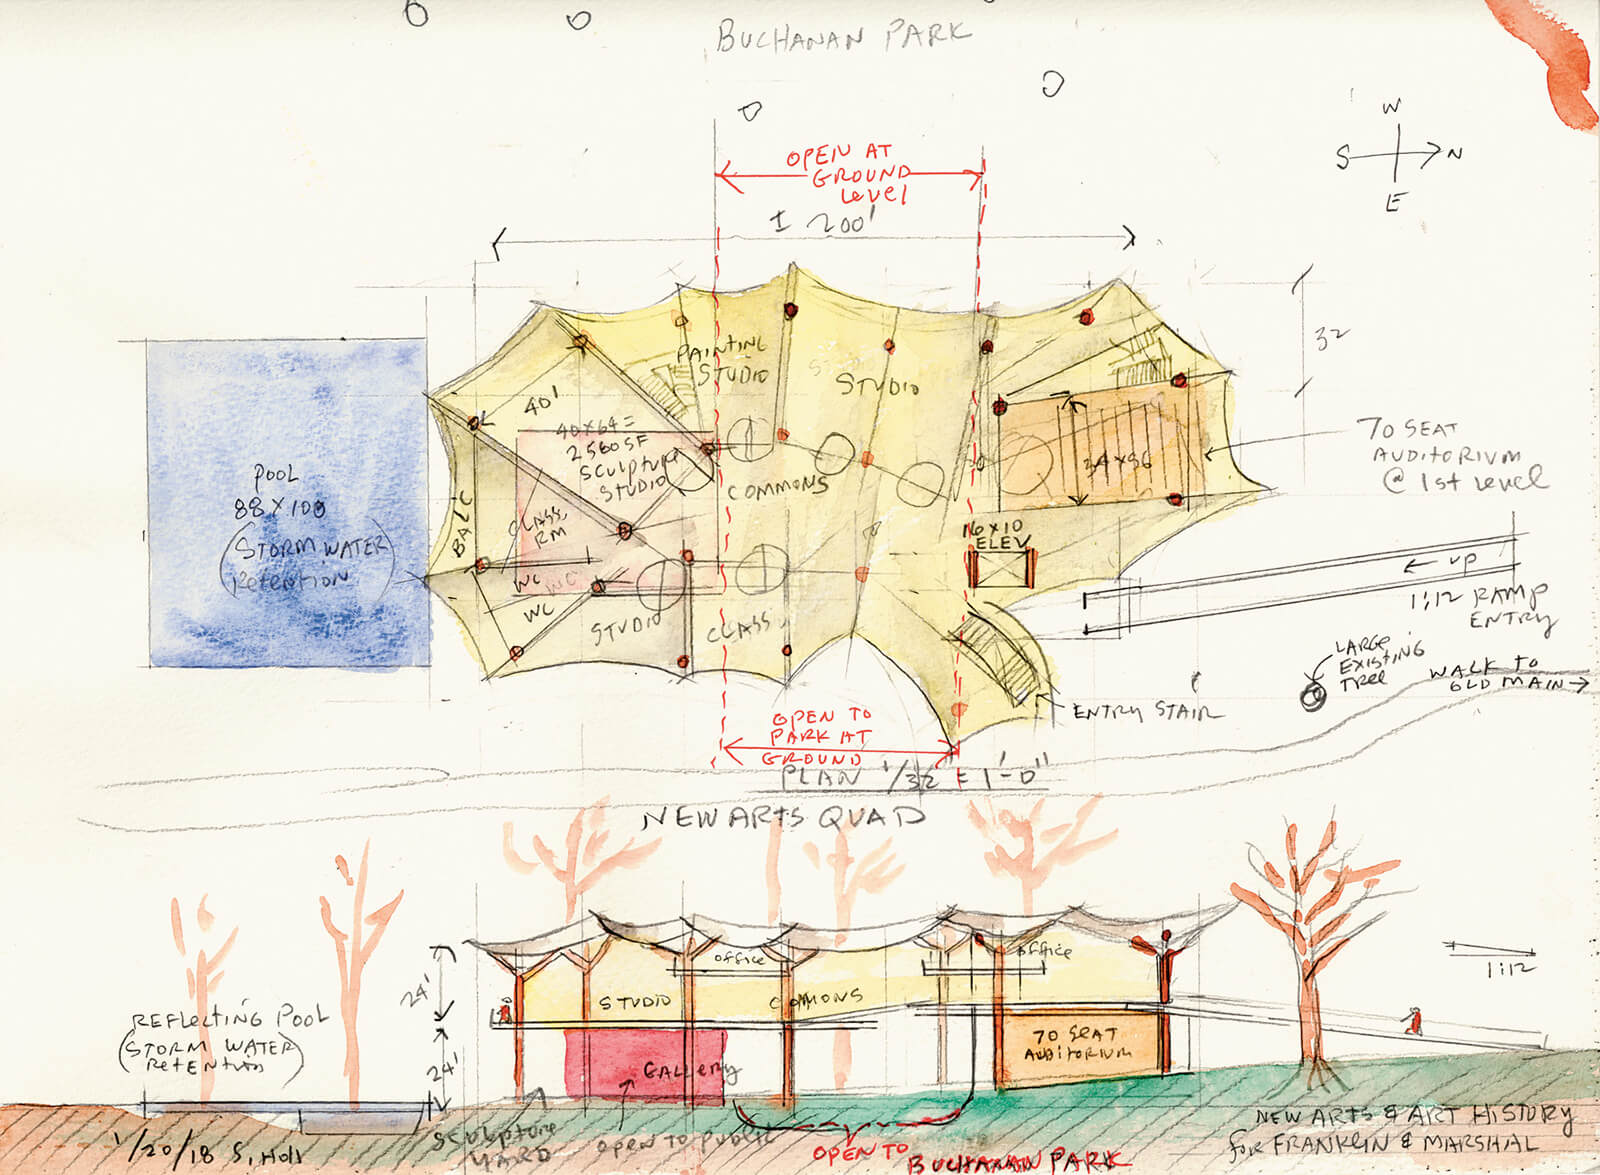 BUCHANAN PARK
OPEN AT
GROUND
LEVEL
± 200'
W
S
N
E
32
40'
PAINTING
STUDIO
STUDIO
40X64=
2560SF
SCULPTURE
STUDIO
COMMONS
CLASS
RM
BALC
WC
WC
WC
STUDIO
CLASS
16X10
ELEV
70 SEAT
AUDITORIUM
@ 1st LEVEL
POOL
88 X 100
(STORM WATER
RETENTION)
UP
1:12 RAMP
ENTRY
LARGE
EXISTING
TREE
WALK TO
OLD MAIN
ENTRY STAIR
OPEN TO
PARK AT
GROUND
PLAN 1/32" = 1'-0"
NEW ARTS QUAD
OFFICE
OFFICE
24'
STUDIO
COMMONS
1:12
REFLECTING POOL
(STORM WATER
RETENTION)
24'
GALLERY
70 SEAT
AUDITORIUM
SCULPTURE
YARD
OPEN TO PUBLIC
OPEN TO
BUCHANAN PARK
1/20/18 S. Holl
NEW ARTS & ART HISTORY
for FRANKLIN & MARSHAL